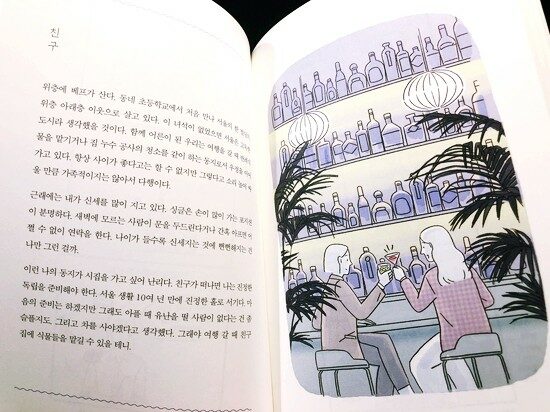 친
구
위층에 베프가 산다. 동네 초등학교에서 처음 만나 서울의 한
위층 아래층 이웃으로 살고 있다. 이 녀석이 없었으면 서울은
도시라 생각했을 것이다. 함께 어른이 된 우리는 여행을 갈 때
물을 맡기거나 집 누수 공사의 청소를 같이 하는 동지로서 우정을
가고 있다. 항상 사이가 좋다고는 할 수 없지만 그렇다고 소리
울 만큼 가족적이지는 않아서 다행이다.
근래에는 내가 신세를 많이 지고 있다. 싱글은 손이 많이 가는
이 분명하다. 새벽에 모르는 사람이 문을 두드린다거나 간혹 아프면
쩔 수 없이 연락을 한다. 나이가 들수록 신세지는 것에 뻔뻔해지는 건
나만 그런 걸까.
이런 나의 동지가 시집을 가고 싶어 난리다. 친구가 떠나면 나는 진정한
독립을 준비해야 한다. 서울 생활 10여 년 만에 진정한 홀로 서기다. 마
음의 준비는 하겠지만 그래도 아플 때 유난을 떨 사람이 없다는 건 좀
슬플지도. 그리고 차를 사야겠다고 생각했다. 그래야 여행 갈 때 친구
집에 식물들을 맡길 수 있을 테니.